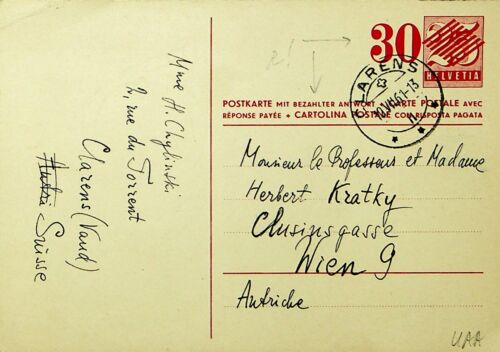 Mme H. Chylinski
2, rue du Torrent
Clarens (Vaud)
Autri Suisse
30
HELVETIA
CLARENS
POSTKARTE MIT BEZAHLTER ANTWORT + CARTE POSTALE AVEC
RÉPONSE PAYÉE + CARTOLINA POSTALE CON RISPOSTA PAGATA
Monsieur le Professeur et Madame
Herbert Kratky
Clusiusgasse
Wien 9
Autriche
UAA